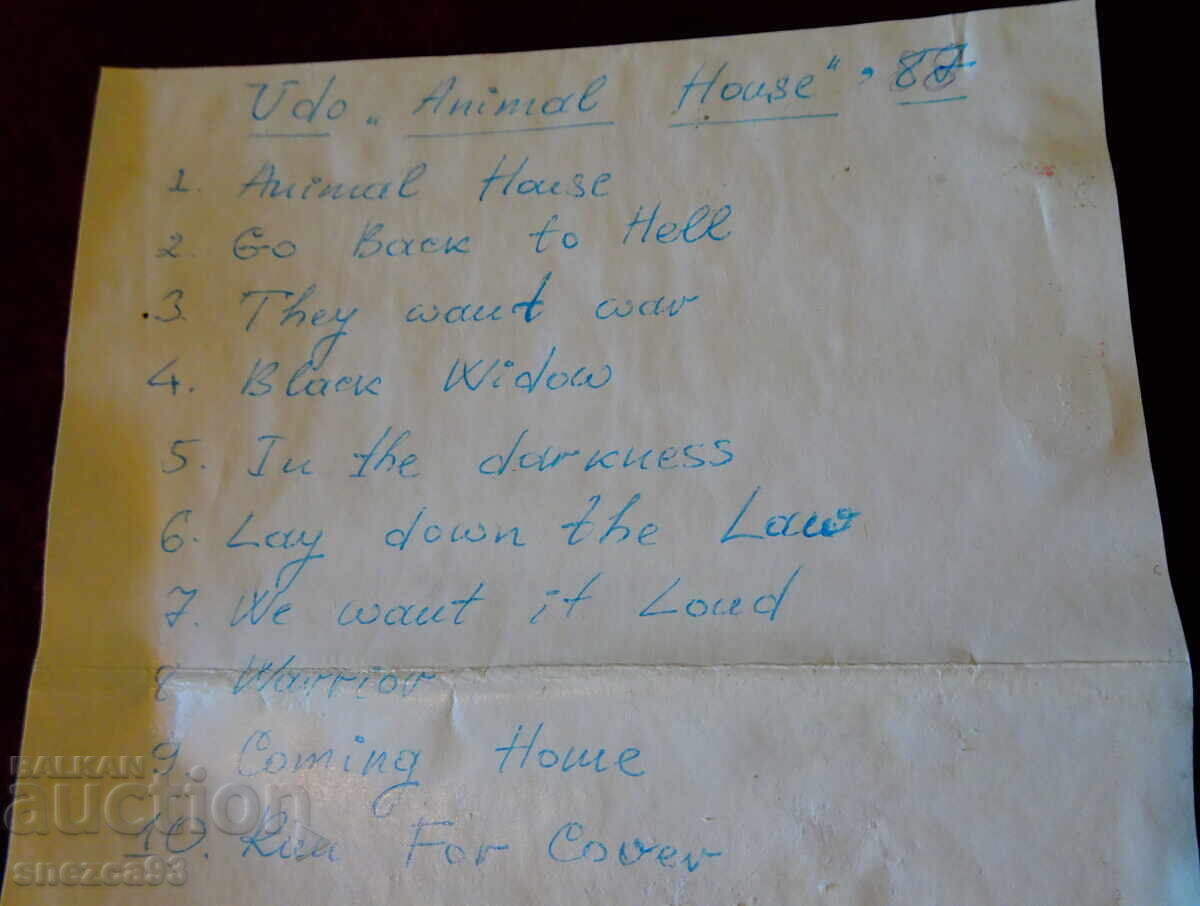 Udo „Animal House“, 87
1. Animal House
2. Go Back to Hell
3. They want war
4. Black Widow
5. In the darkness
6. Lay down the Law
7. We want it Loud
8 Warrior
9. Coming Home
10. Run For Cover
BALKAN
auction
snezca93